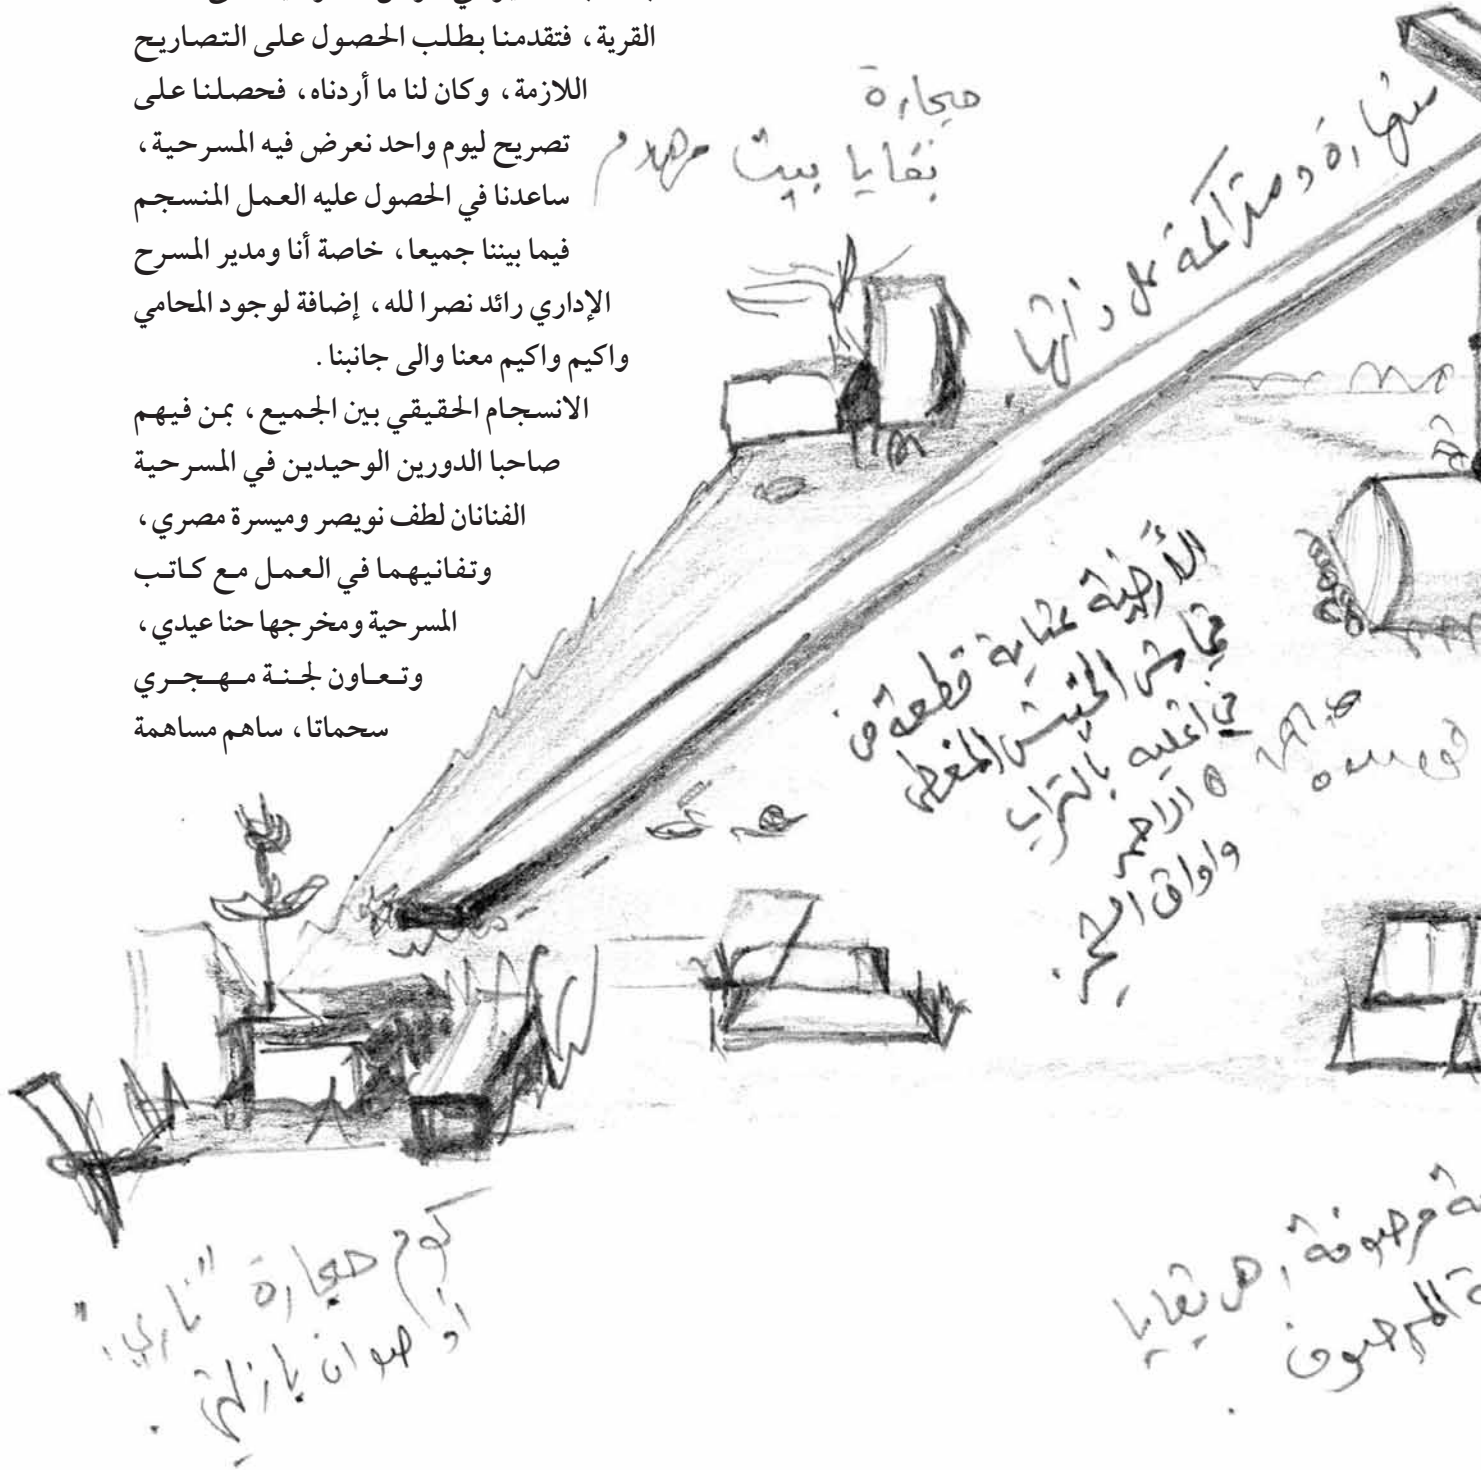 القرية، فتقدمنا بطلب الحصول على التصاريح
اللازمة، وكان لنا ما أردناه، فحصلنا على
تصريح ليوم واحد نعرض فيه المسرحية،
ساعدنا في الحصول عليه العمل المنسجم
فيما بيننا جميعا، خاصة أنا ومدير المسرح
الإداري رائد نصرا لله، إضافة لوجود المحامي
واكيم واكيم معنا والى جانبنا.
الانسجام الحقيقي بين الجميع، بمن فيهم
صاحبا الدورين الوحيدين في المسرحية
الفنانان لطف نويصر وميسرة مصري،
وتفانيهما في العمل مع كاتب
المسرحية ومخرجها حنا عيدي،
وتعاون لجنة مهجري
سحماتا، ساهم مساهمة
حجارة
بقايا بيت مهدوم
منهارة ومتراكمة على ذاتها
الأرضية بمثابة قطعة من
قماش الخيش المغطى
في اغلبه بالتراب
الاحمر
واوراق الشجر.
كوم حجارة "ناري"
أو صوان بازلتي.
مرصوفة، هي بقايا
المرصوف.